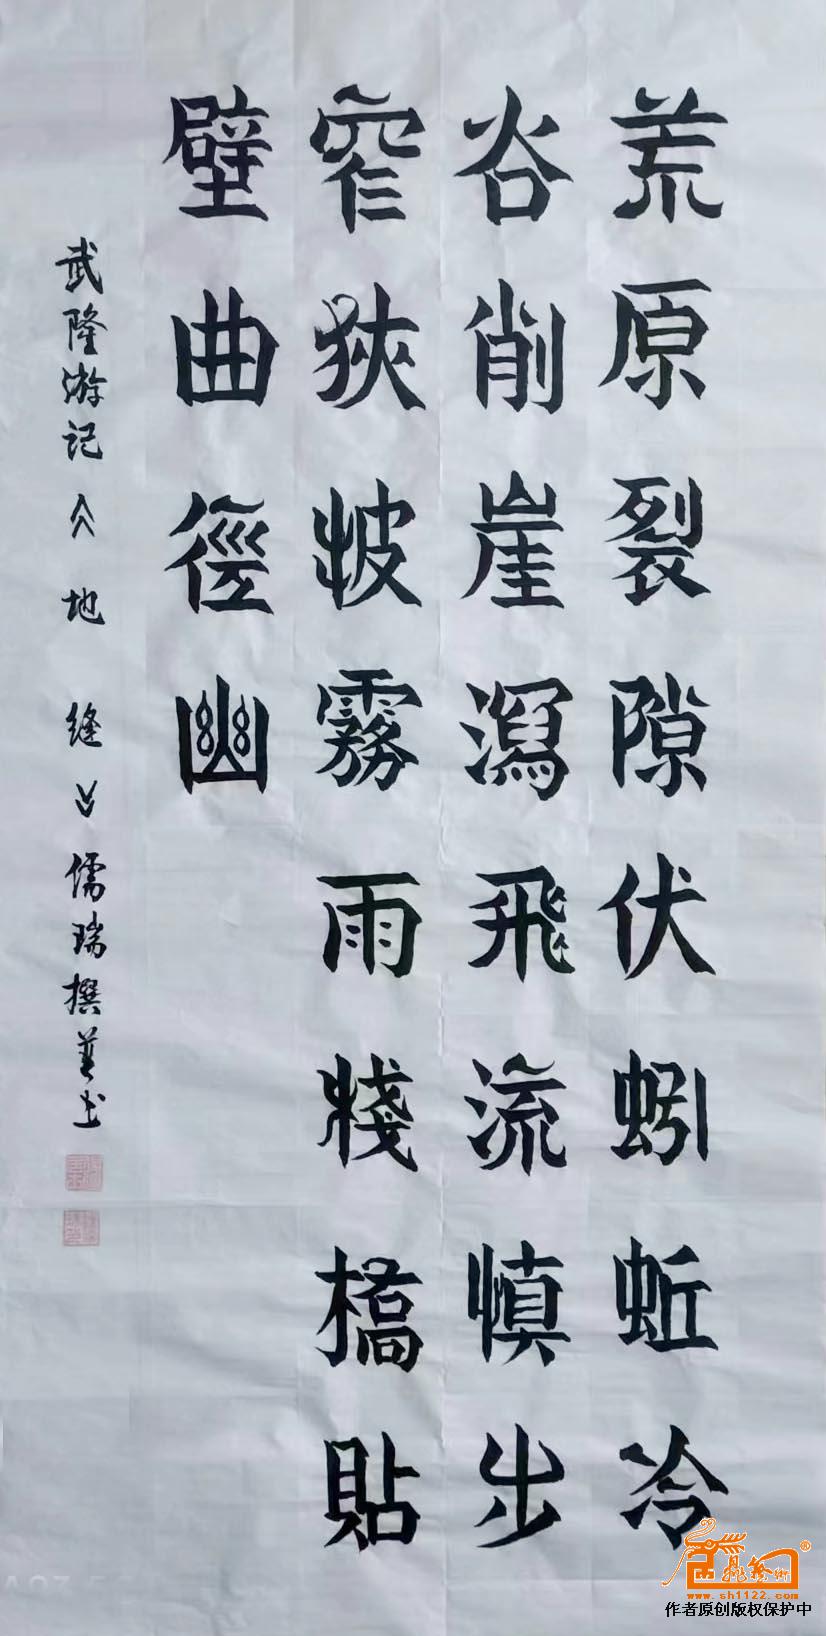 荒原裂隙伏蚓蚯冷
谷削崖瀉飛流慎步
窄狹坡霧雨棧橋貼
壁曲徑幽
武隆游记《地缝》儒瑞撰并书
www.sh1122.com
作者原创版权保护中